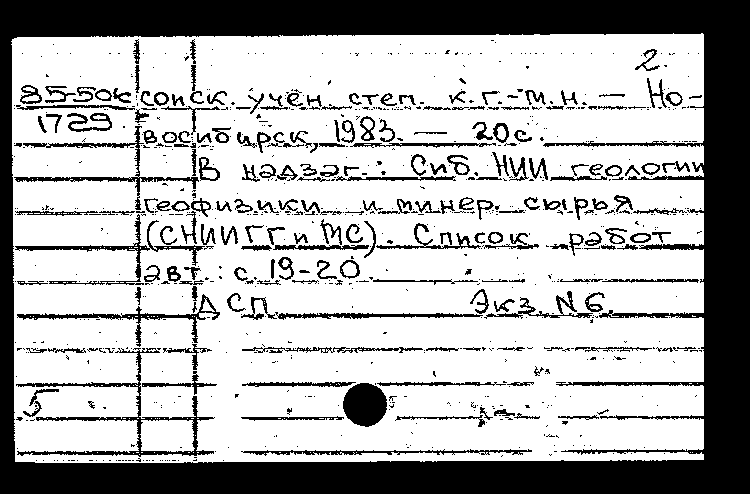 2.
85-50к соиск. учён. степ. к.г.-м.н. — Но-
1729 восибирск, 1983. — 20с.
В надзаг.: Сиб. НИИ геологии
геофизики и минер. сырья
(СНИИГГиМС). Список работ
авт.: с. 19-20.
ДСП Экз. N6.
5